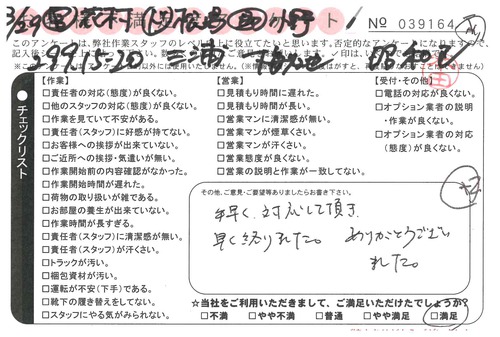 3/29
No 039164
このアンケートは、弊社作業スタッフのレベル向上に役立てたいと思います。否定的なアンケートになりますので、
チェックリスト
【作業】
□責任者の対応(態度)が良くない。
□他のスタッフの対応(態度)が良くない。
□作業を見ていて不安がある。
□責任者(スタッフ)に好感が持てない。
□お客様への挨拶が出来ていない。
□ご近所への挨拶・気遣いが無い。
□作業開始前の内容確認がなかった。
□作業開始時間が遅れた。
□荷物の取り扱いが雑である。
□お部屋の養生が出来ていない。
□作業時間が長すぎる。
□責任者(スタッフ)に清潔感が無い。
□責任者(スタッフ)が汗くさい。
□トラックが汚い。
□梱包資材が汚い。
□運転が不安(下手)である。
□靴下の履き替えをしてない。
□スタッフにやる気がみられない。
【営業】
□見積もり時間に遅れた。
□見積もり時間が長い。
□営業マンに清潔感が無い。
□営業マンが煙草くさい。
□営業マンが汗くさい。
□営業態度が良くない。
□営業の説明と作業が一致してない。
【受付・その他】
□電話の対応が良くない。
□オプション業者の説明
・作業が良くない。
□オプション業者の対応
(態度)が良くない。
その他、ご意見・ご要望等ありましたらお書き下さい。
手早く対応して頂き
早く終われた。ありがとうござい
ました。
☆当社をご利用いただきまして、ご満足いただけたでしょうか?
□不満 □やや不満 □普通 □やや満足 □満足